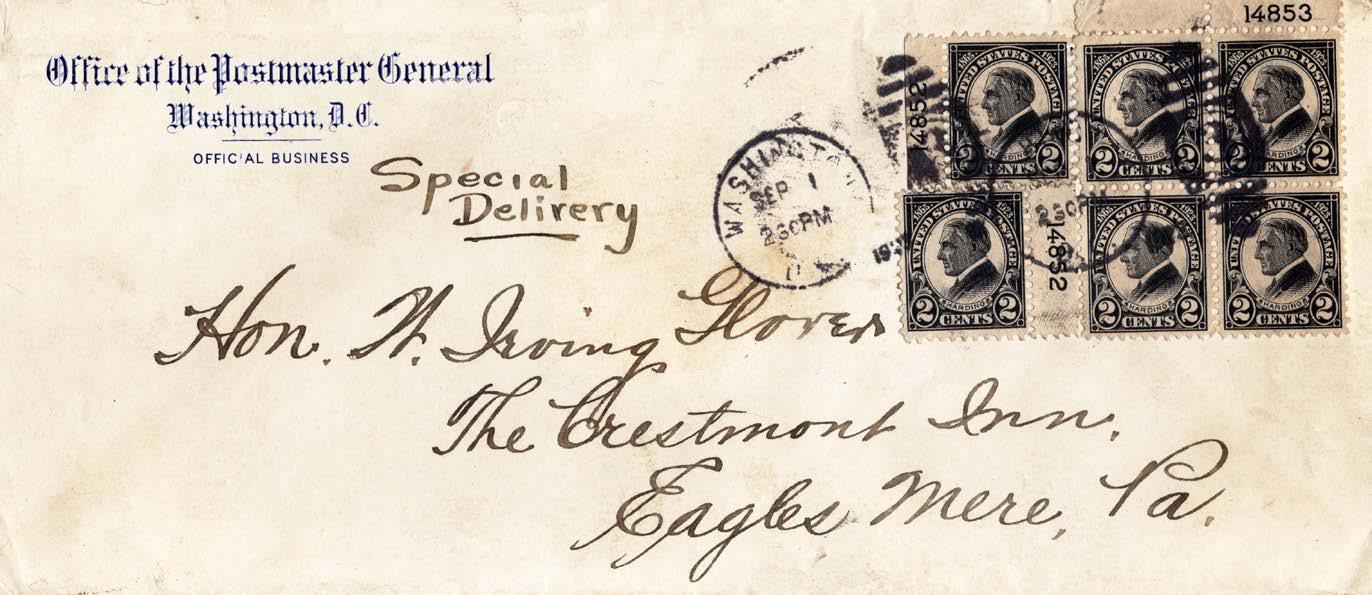 Office of the Postmaster General
Washington, D.C.
OFFICIAL BUSINESS
Special
Delivery
WASHINGTON
SEP 1
230PM
D.
14853
14852
14852
1865 UNITED STATES POSTAGE 1923
HARDING
2 CENTS 2
1865 UNITED STATES POSTAGE 1923
HARDING
2 CENTS 2
1865 UNITED STATES POSTAGE 1923
HARDING
2 CENTS 2
1865 UNITED STATES POSTAGE 1923
HARDING
2 CENTS 2
1865 UNITED STATES POSTAGE 1923
HARDING
2 CENTS 2
1865 UNITED STATES POSTAGE 1923
HARDING
2 CENTS 2
230PM
Hon. W. Irving Glover
The Crestmont Inn.
Eagles Mere, Pa.